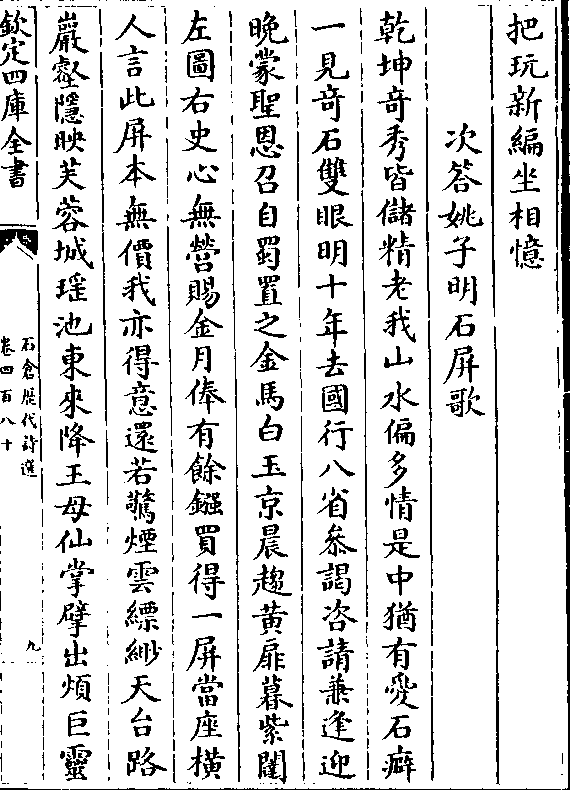 把玩新編坐相憶
次答姚子明石屏歌
乾坤竒秀皆儲精老我山水偏多情是中猶有愛石癖
一見竒石雙眼明十年去國行八省叅謁咨請兼逢迎
晚蒙聖恩召自蜀置之金馬白玉京晨趨黄扉暮紫闥
左圖右史心無營賜金月俸有餘鏹買得一屏當座横
人言此屏本無價我亦得意還若驚煙雲縹緲天台路
巖壑隱映芙蓉城瑶池東來降王母仙掌擘出煩巨靈
欽定四庫全書
石倉歷代詩選
卷四百八十
九